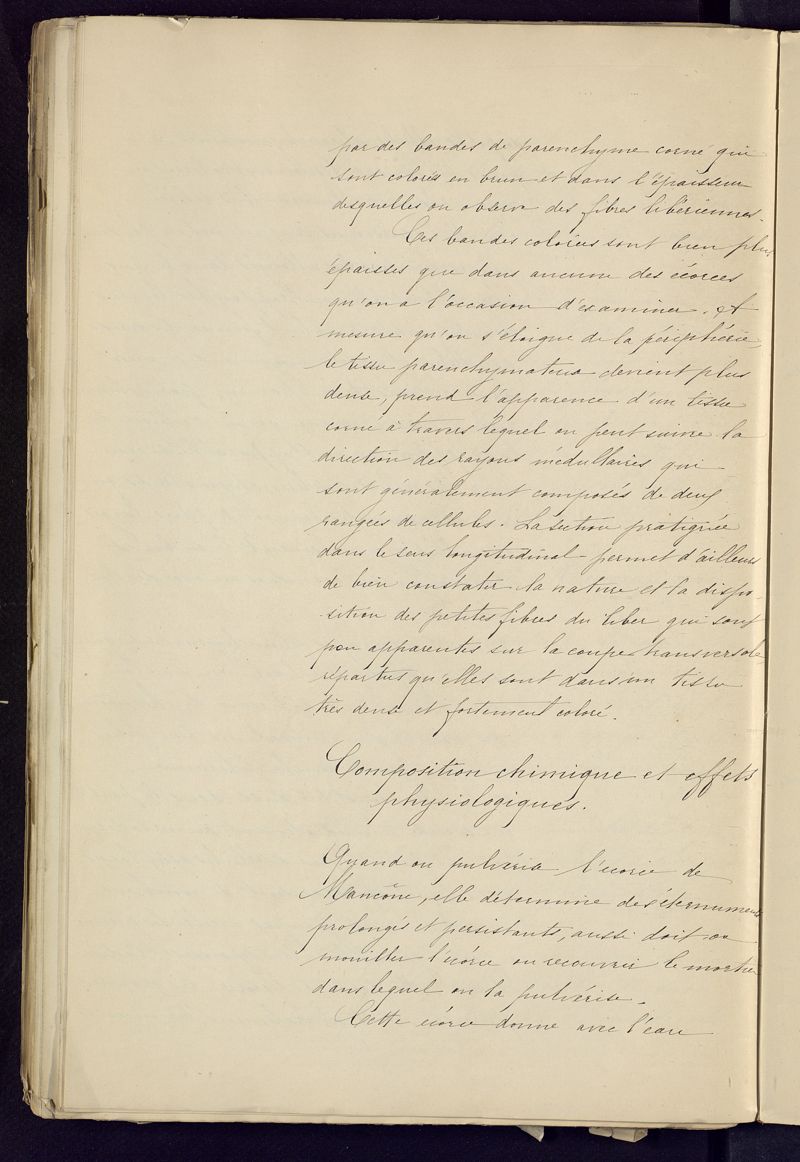 par des bandes de parenchyme corné qui
sont colorés en brun et dans l'épaisseur
desquelles on observe des fibres libériennes.
Ces bandes colorées sont bien plus
épaisses que dans aucune des écorces
qu'on a l'occasion d'examiner. A
mesure qu'on s'éloigne de la périphérie
le tissu parenchymateux devient plus
dense, prend l'apparence d'un tissu
corné à travers lequel on peut suivre la
direction des rayons médullaires qui
sont généralement composés de deux
rangées de cellules. La section pratiquée
dans le sens longitudinal permet d'ailleurs
de bien constater la nature et la dispo-
sition des petites fibres du liber qui sont
peu apparentes sur la coupe transversale,
réparties qu'elles sont dans un tissu
très dense et fortement coloré.
Composition chimique et effets
physiologiques.
Quand on pulvérise l'écorce de
Mancône, elle détermine des éternuments
prolongés et persistants, aussi doit on
mouiller l'écorce ou recouvrir le mortier
dans lequel on la pulvérise.
Cette écorce donne avec l'eau